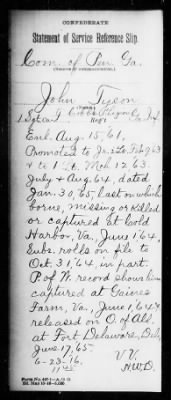 CONFEDERATE
Statement of Service Reference Slip.
Com. of Pen. Ga.
John Tyson
(Name.)
1 Sgt Co. J. Cobb's Legion Ga Inf
Enl. Aug. 15, 61,
Promoted to Jr. 2 Lt. Feb 9, 63
& to 1 Lt. Mch 12, 63.
July & Aug 64, dated
Jan. 30, 65, last on which
borne, missing or killed
or captured at Cold
Harbor, Va., June 1, 64.
Subs. rolls on file to
Oct. 31, 64, in part.
P. of W. record shows him
captured at Gaines
Farm, Va., June 1, 64 &
released on O. of Alleg.
at Fort Delaware, Del,
June 17, 65.
6-23-16.
V V.
H.W.D.